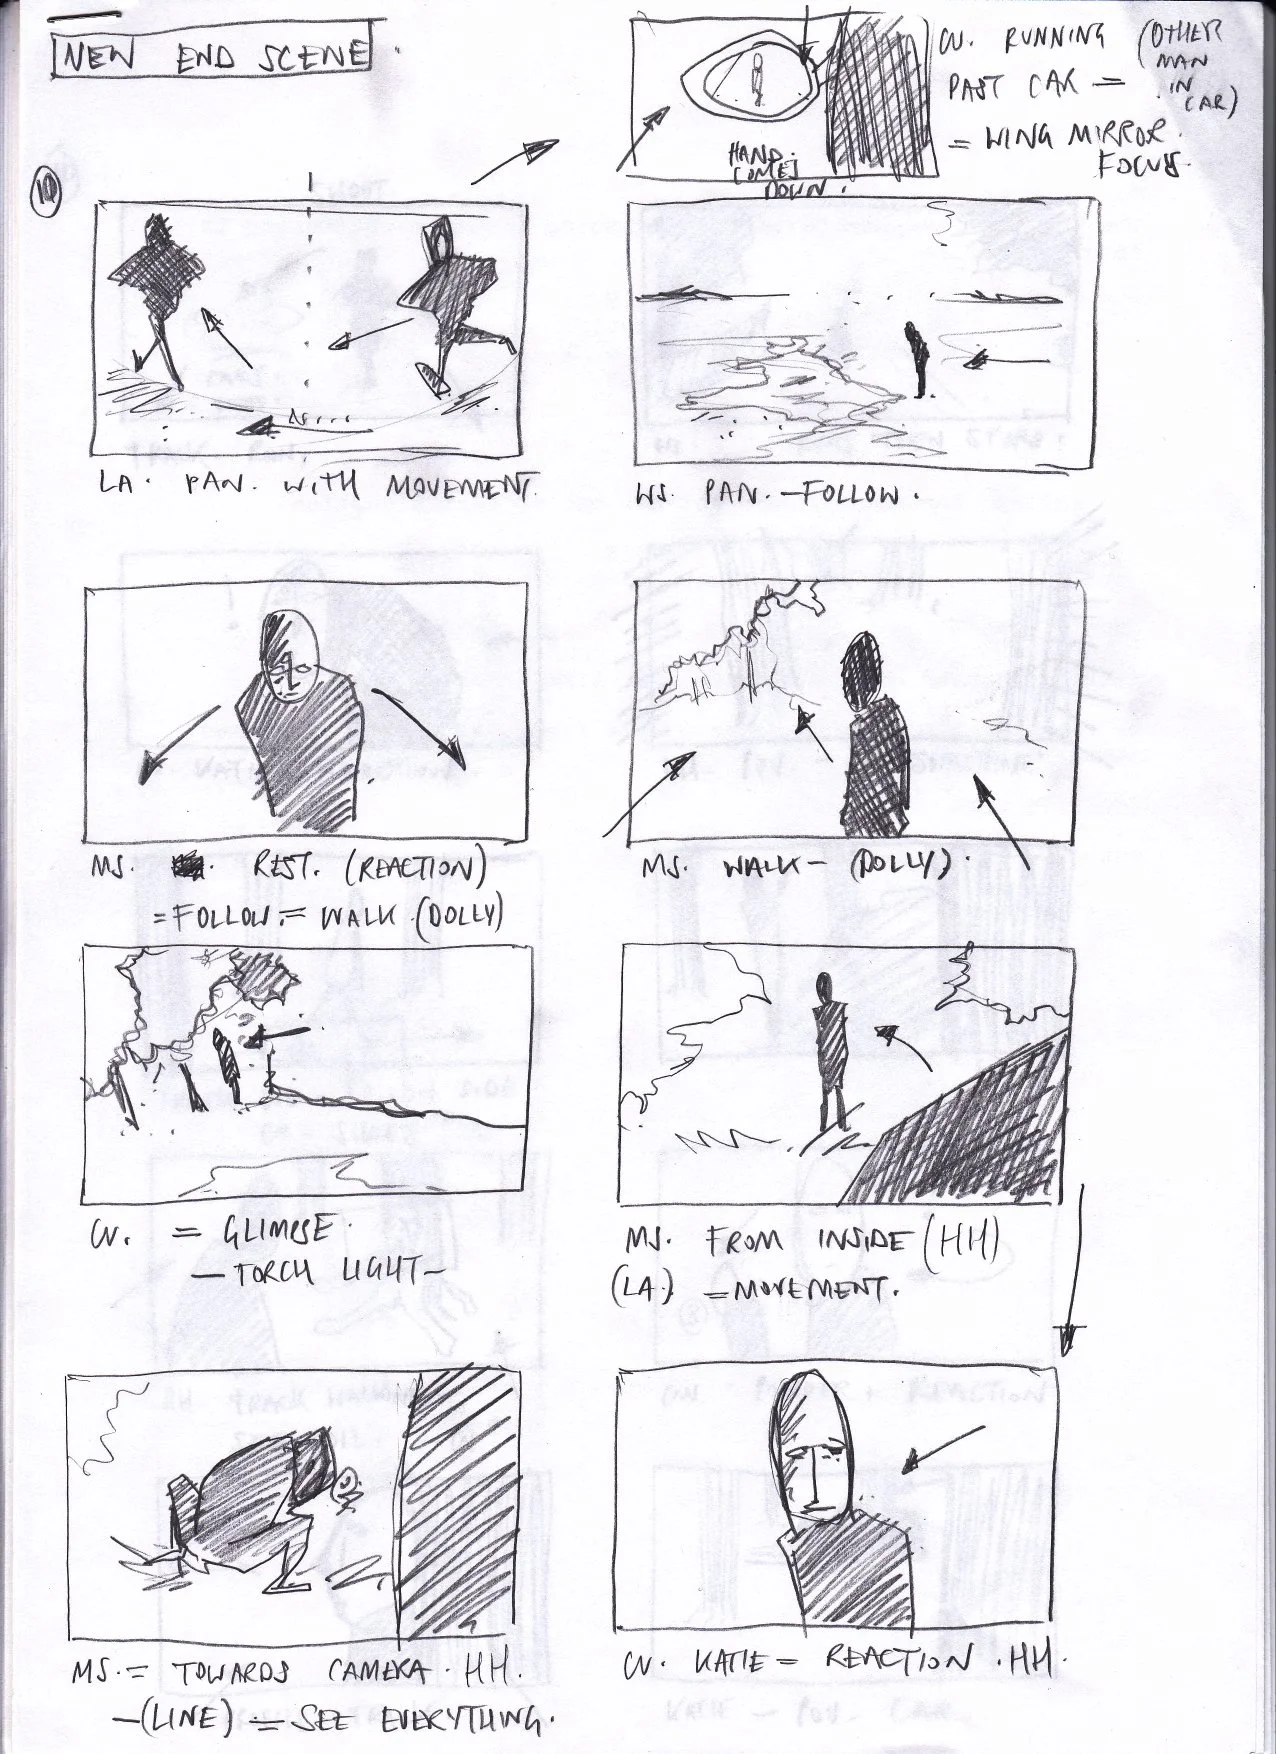 NEW END SCENE.
CU. RUNNING (OTHER
MAN
IN
CAR)
PAST CAR =
= WING MIRROR.
FOCUS.
HAND.
COMES
DOWN.
10
LA. PAN. WITH MOVEMENT.
WS. PAN. - FOLLOW.
MS. REST. (REACTION)
= FOLLOW. = WALK. (DOLLY)
MS. WALK - (DOLLY).
CU. = GLIMPSE.
- TORCH LIGHT -
MS. FROM INSIDE (HH)
(LA.) = MOVEMENT.
MS. = TOWARDS CAMERA. HH.
- (LINE) = SEE EVERYTHING.
CU. KATIE = REACTION. HH.